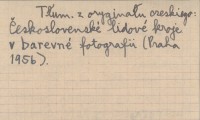 Tłum. z oryginału czeskiego:
Československé lidové kroje
v barevné fotografii (Praha
1956).